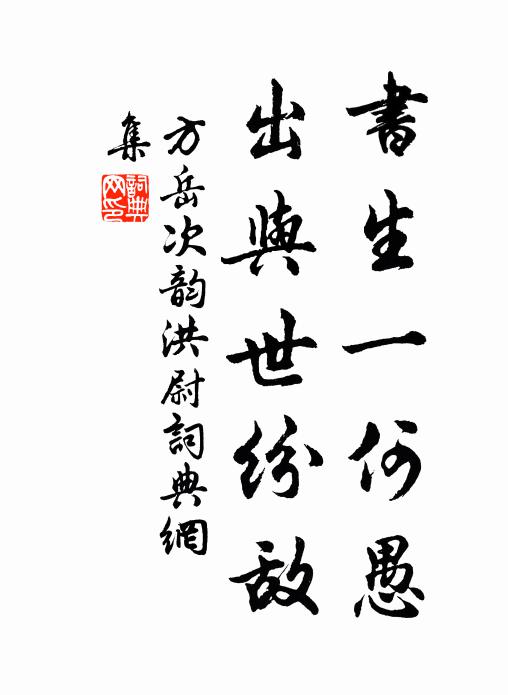 書生一何愚
出與世紛敵
方岳次韵洪尉詞典網
集
詞典
网印